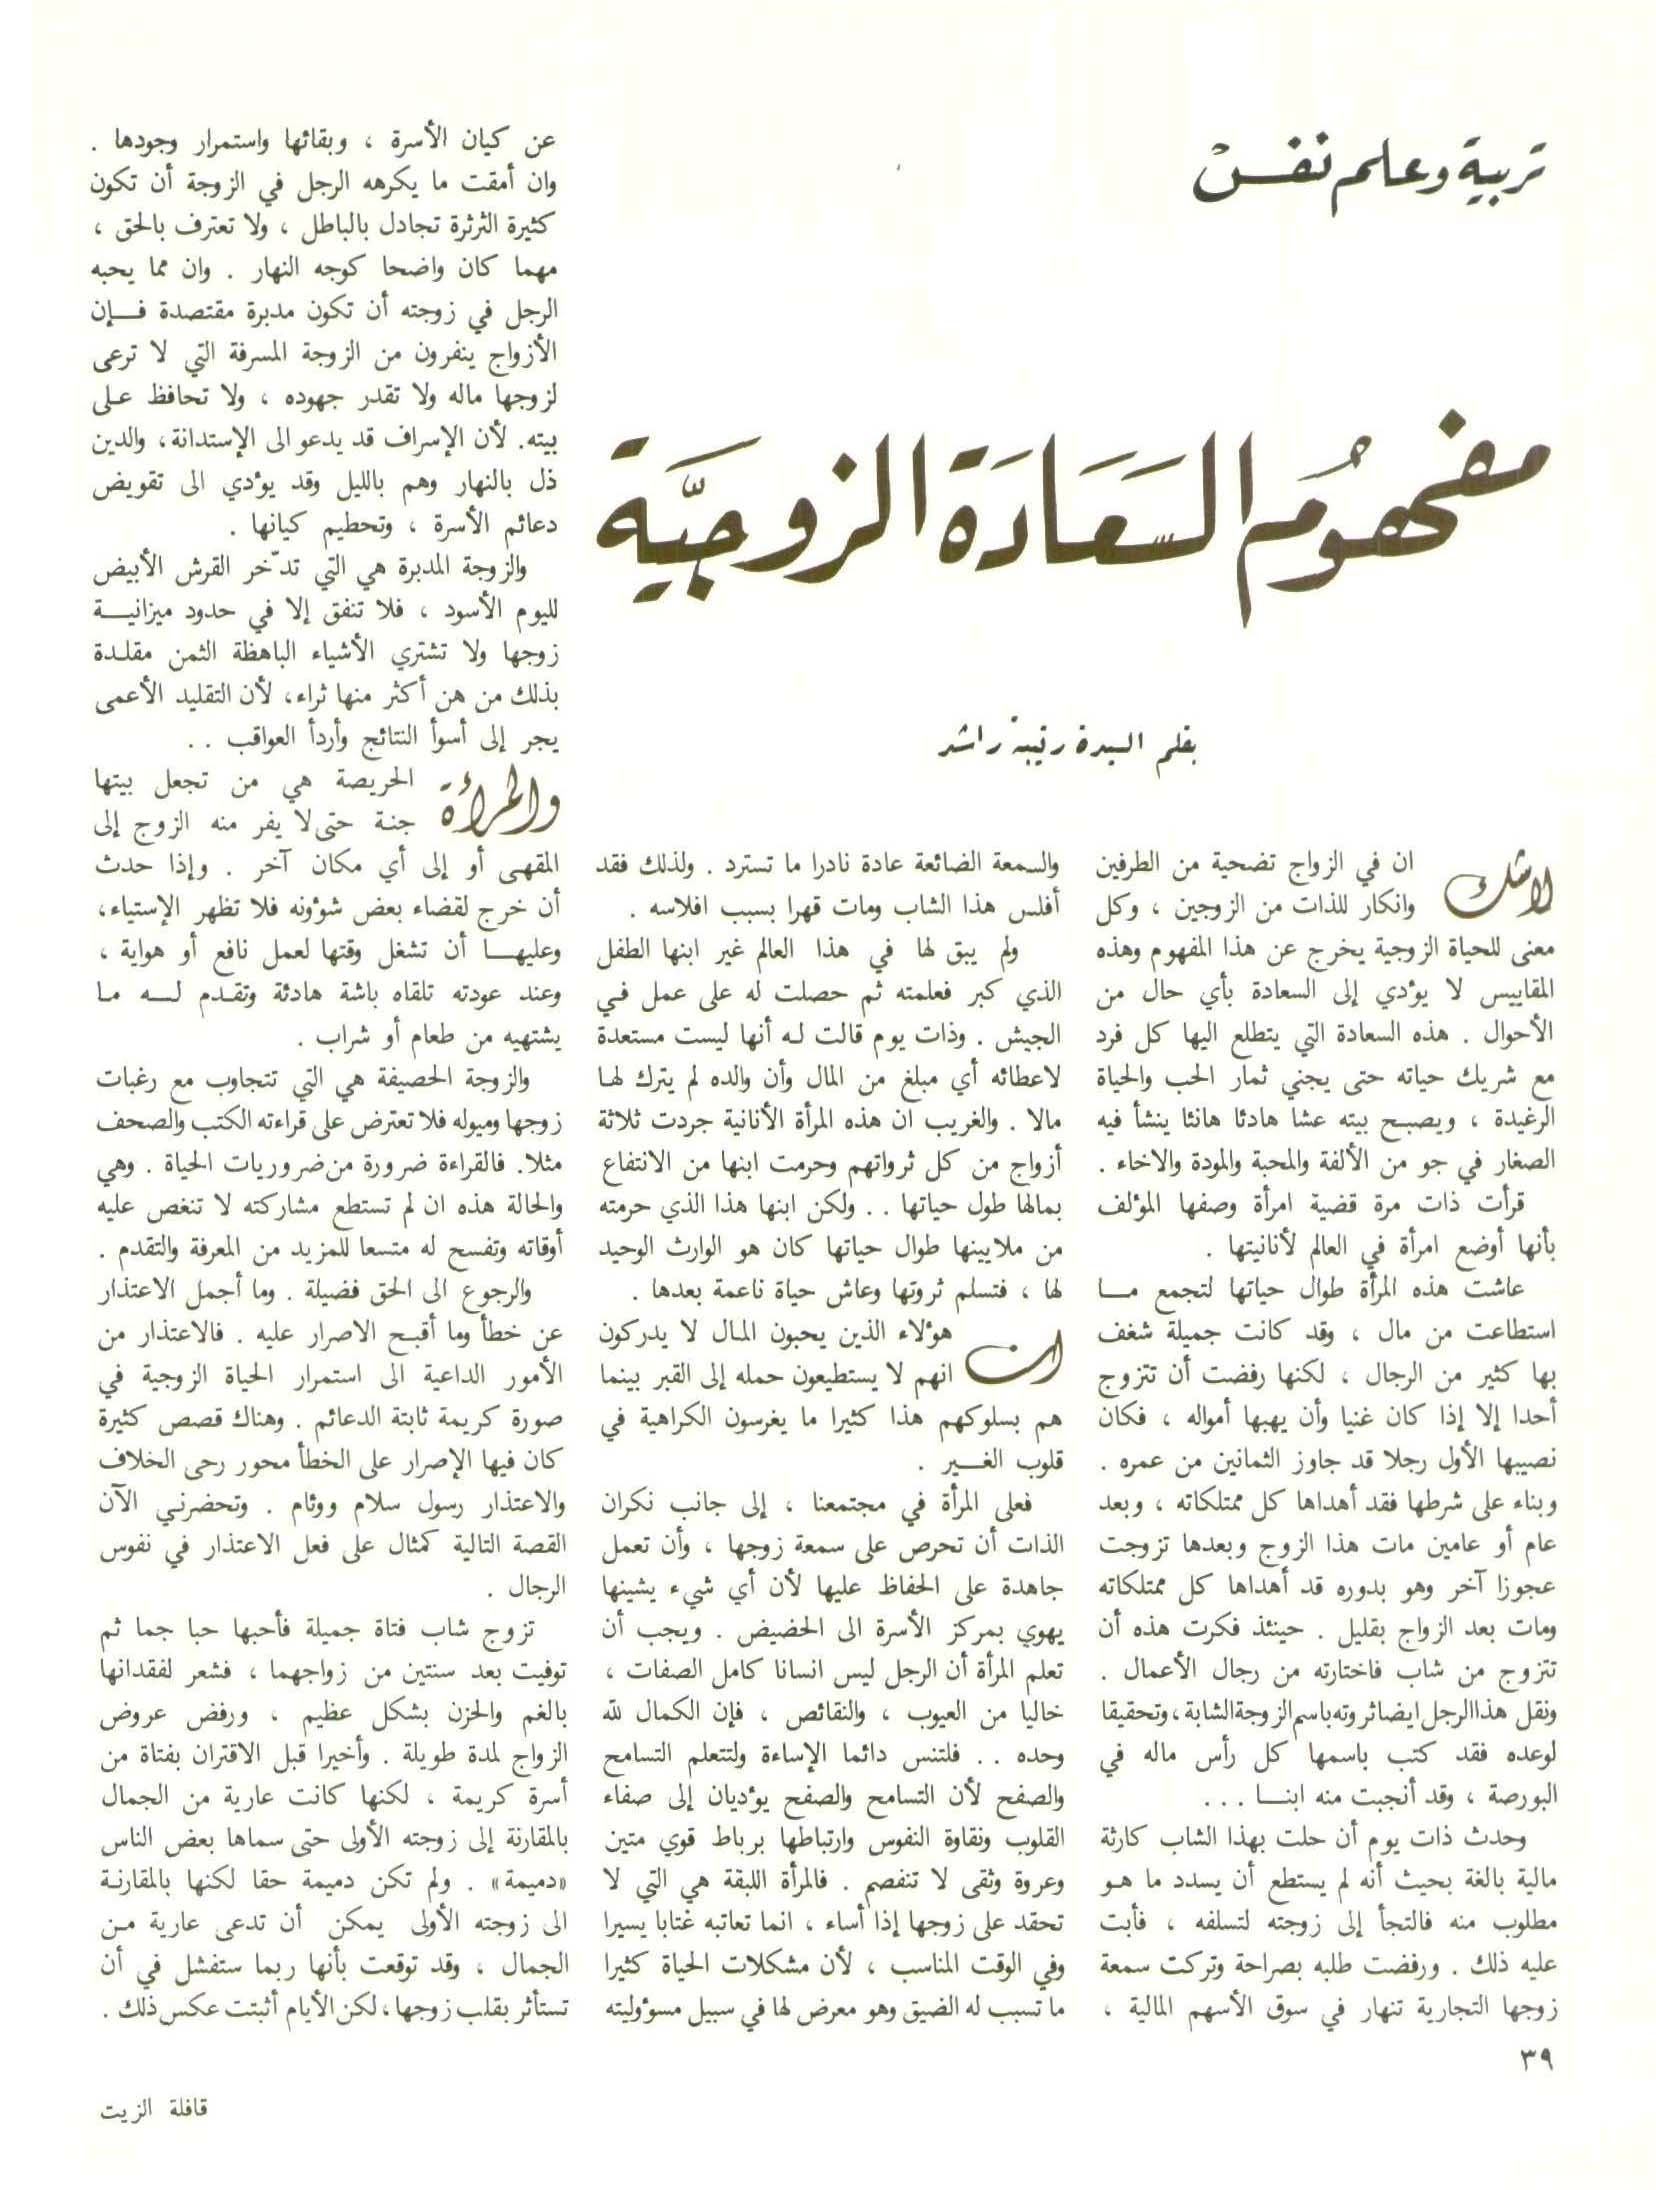 تربية وعلم نفس
مفهوم السعادة الزوجية
بقلم السيدة رتيبة راشد
لا شك ان في الزواج تضحية من الطرفين
وانكار للذات من الزوجين ، وكل
معنى للحياة الزوجية يخرج عن هذا المفهوم وهذه
المقاييس لا يؤدي إلى السعادة بأي حال من
الأحوال . هذه السعادة التي يتطلع اليها كل فرد
مع شريك حياته حتى يجني ثمار الحب والحياة
الرغيدة ، ويصبح بيته عشا هادئا هانئا ينشأ فيه
الصغار في جو من الألفة والمحبة والمودة والاخاء .
قرأت ذات مرة قضية امرأة وصفها المؤلف
بأنها أوضع امرأة في العالم لأنانيتها .
عاشت هذه المرأة طوال حياتها لتجمع ما
استطاعت من مال ، وقد كانت جميلة شغف
بها كثير من الرجال ، لكنها رفضت أن تتزوج
أحدا إلا إذا كان غنيا وأن يهبها أمواله ، فكان
نصيبها الأول رجلا قد جاوز الثمانين من عمره .
وبناء على شرطها فقد أهداها كل ممتلكاته ، وبعد
عام أو عامين مات هذا الزوج وبعدها تزوجت
عجوزا آخر وهو بدوره قد أهداها كل ممتلكاته
ومات بعد الزواج بقليل . حينئذ فكرت هذه أن
تتزوج من شاب فاختارته من رجال الأعمال .
ونقل هذا الرجل ايضا ثروته باسم الزوجة الشابة ، وتحقيقا
لوعده فقد كتب باسمها كل رأس ماله في
البورصة ، وقد أنجبت منه ابنا ...
وحدث ذات يوم أن حلت بهذا الشاب كارثة
مالية بالغة بحيث أنه لم يستطع أن يسدد ما هو
مطلوب منه فالتجأ إلى زوجته لتسلفه ، فأبت
عليه ذلك . ورفضت طلبه بصراحة وتركت سمعة
زوجها التجارية تنهار في سوق الأسهم المالية ،
والسمعة الضائعة عادة نادرا ما تسترد . ولذلك فقد
أفلس هذا الشاب ومات قهرا بسبب افلاسه .
ولم يبق لها في هذا العالم غير ابنها الطفل
الذي كبر فعلمته ثم حصلت له على عمل في
الجيش . وذات يوم قالت له أنها ليست مستعدة
لاعطائه أي مبلغ من المال وأن والده لم يترك لها
مالا . والغريب ان هذه المرأة الأنانية جردت ثلاثة
أزواج من كل ثرواتهم وحرمت ابنها من الانتفاع
بمالها طول حياتها .. ولكن ابنها هذا الذي حرمته
من ملايينها طوال حياتها كان هو الوارث الوحيد
لها ، فتسلم ثروتها وعاش حياة ناعمة بعدها .
ان هؤلاء الذين يحبون المال لا يدركون
انهم لا يستطيعون حمله إلى القبر بينما
هم بسلوكهم هذا كثيرا ما يغرسون الكراهية في
قلوب الغير .
فعلى المرأة في مجتمعنا ، إلى جانب نكران
الذات أن تحرص على سمعة زوجها ، وأن تعمل
جاهدة على الحفاظ عليها لأن أي شيء يشينها
يهوي بمركز الأسرة الى الحضيض . ويجب أن
تعلم المرأة أن الرجل ليس انسانا كامل الصفات ،
خاليا من العيوب ، والنقائص ، فإن الكمال لله
وحده .. فلتنس دائما الإساءة ولتتعلم التسامح
والصفح لأن التسامح والصفح يؤديان إلى صفاء
القلوب ونقاوة النفوس وارتباطها برباط قوي متين
وعروة وثقى لا تنفصم . فالمرأة اللبقة هي التي لا
تحقد على زوجها إذا أساء ، انما تعاتبه عتابا يسيرا
وفي الوقت المناسب ، لأن مشكلات الحياة كثيرا
ما تسبب له الضيق وهو معرض لها في سبيل مسؤوليته
عن كيان الأسرة ، وبقائها واستمرار وجودها .
وان أمقت ما يكرهه الرجل في الزوجة أن تكون
كثيرة الثرثرة تجادل بالباطل ، ولا تعترف بالحق ،
مهما كان واضحا كوجه النهار . وان مما يحبه
الرجل في زوجته أن تكون مدبرة مقتصدة فإن
الأزواج ينفرون من الزوجة المسرفة التي لا ترعى
لزوجها ماله ولا تقدر جهوده ، ولا تحافظ على
بيته. لأن الإسراف قد يدعو الى الإستدانة ، والدين
ذل بالنهار وهم بالليل وقد يؤدي الى تقويض
دعائم الأسرة ، وتحطيم كيانها .
والزوجة المدبرة هي التي تدّخر القرش الأبيض
لليوم الأسود ، فلا تنفق إلا في حدود ميزانية
زوجها ولا تشتري الأشياء الباهظة الثمن مقلدة
بذلك من هن أكثر منها ثراء، لأن التقليد الأعمى
يجر إلى أسوأ النتائج وأردأ العواقب ..
والمرأة الحريصة هي من تجعل بيتها
جنة حتى لا يفر منه الزوج إلى
المقهى أو إلى أي مكان آخر . وإذا حدث
أن خرج لقضاء بعض شؤونه فلا تظهر الإستياء،
وعليها أن تشغل وقتها لعمل نافع أو هواية ،
وعند عودته تلقاه باشة هادئة وتقدم له ما
يشتهيه من طعام أو شراب .
والزوجة الحصيفة هي التي تتجاوب مع رغبات
زوجها وميوله فلا تعترض على قراءته الكتب والصحف
مثلا. فالقراءة ضرورة من ضروريات الحياة . وهي
والحالة هذه ان لم تستطع مشاركته لا تنغص عليه
أوقاته وتفسح له متسعا للمزيد من المعرفة والتقدم .
والرجوع الى الحق فضيلة . وما أجمل الاعتذار
عن خطأ وما أقبح الاصرار عليه . فالاعتذار من
الأمور الداعية الى استمرار الحياة الزوجية في
صورة كريمة ثابتة الدعائم . وهناك قصص كثيرة
كان فيها الإصرار على الخطأ محور رحى الخلاف
والاعتذار رسول سلام ووئام . وتحضرني الآن
القصة التالية كمثال على فعل الاعتذار في نفوس
الرجال .
تزوج شاب فتاة جميلة فأحبها حبا جما ثم
توفيت بعد سنتين من زواجهما ، فشعر لفقدانها
بالغم والحزن بشكل عظيم ، ورفض عروض
الزواج لمدة طويلة . وأخيرا قبل الاقتران بفتاة من
أسرة كريمة ، لكنها كانت عارية من الجمال
بالمقارنة إلى زوجته الأولى حتى سماها بعض الناس
«دميمة» . ولم تكن دميمة حقا لكنها بالمقارنة
الى زوجته الأولى يمكن أن تدعى عارية من
الجمال ، وقد توقعت بأنها ربما ستفشل في أن
تستأثر بقلب زوجها ، لكن الأيام أثبتت عكس ذلك .
٣٩
قافلة الزيت